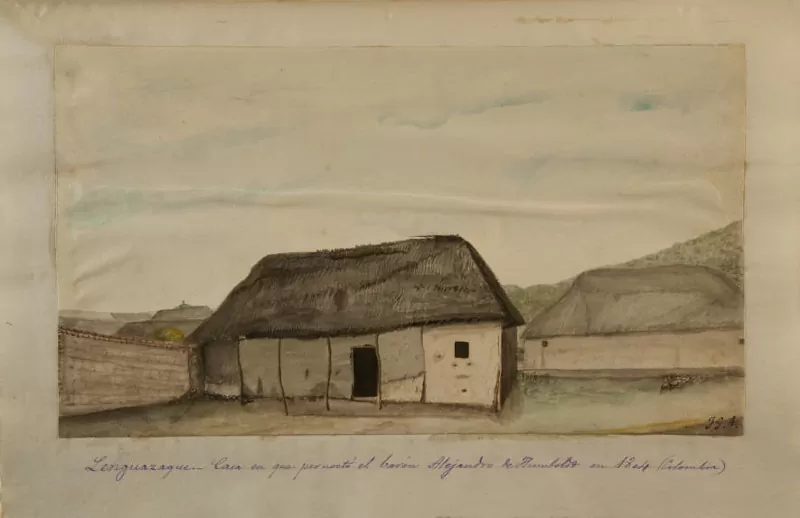 J.G.A.
Lenguazaque – Casa en que pernoctó el barón Alejandro de Humboldt en 1804 (Colombia)